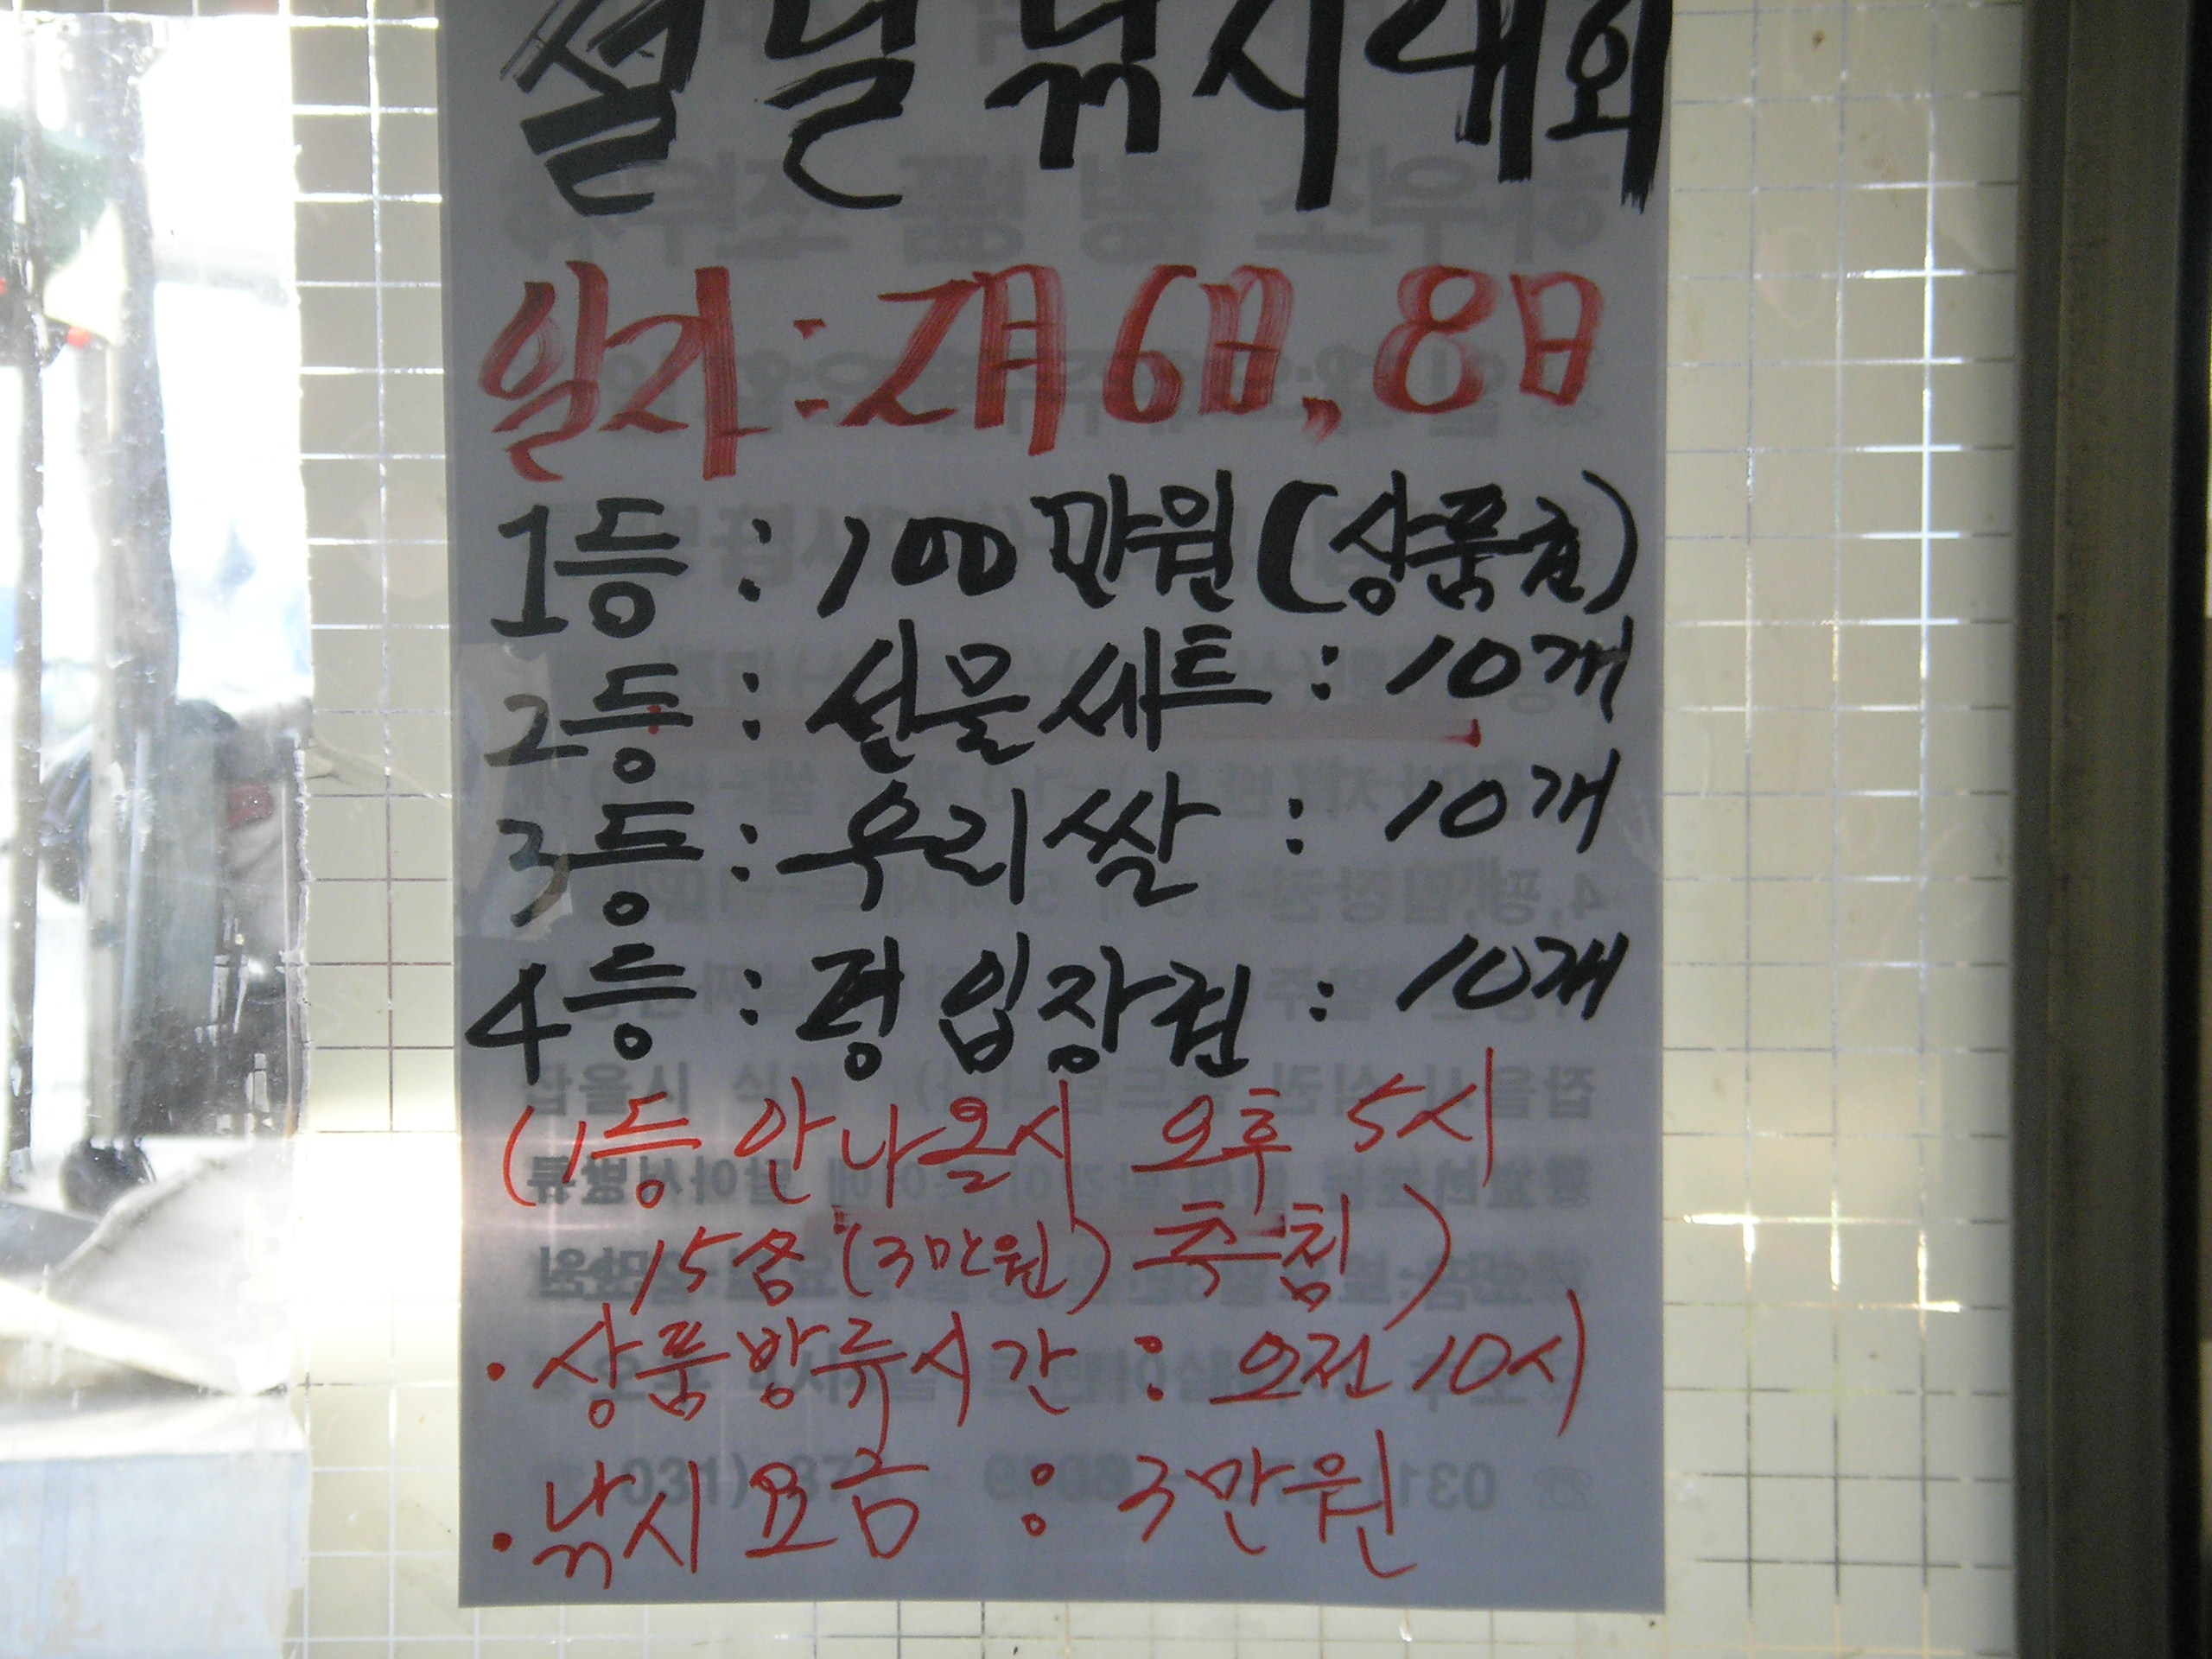 설날낚시대회
일자:2月6日, 8日
1등 : 100만원(상품권)
2등 : 선물세트 : 10개
3등 : 우리쌀 : 10개
4등 : 평입장권 : 10개
(1등 안나올시 오후 5시
15名 (3만원) 추첨)
· 상품방류시간 : 오전 10시
· 낚시요금 : 3만원